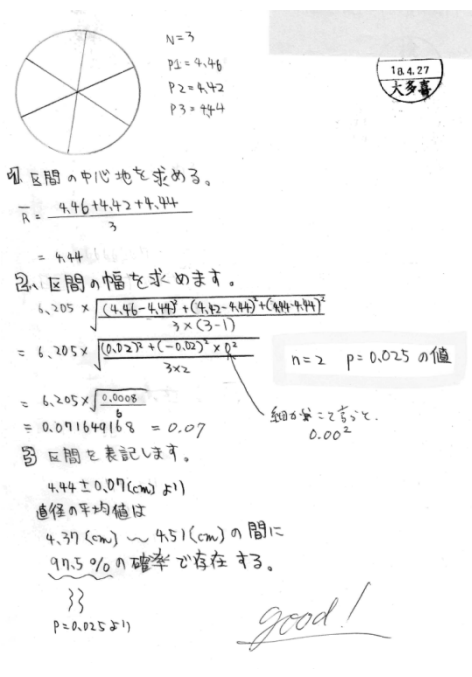 N=3
P1=4.46
P2=4.42
P3=4.44
18.4.27
大多喜
1. 区間の中心地を求める。
R̅ = (4.46+4.42+4.44)/3
= 4.44
2. 区間の幅を求めます。
6.205×√((4.46-4.44)²+(4.42-4.44)²+(4.44-4.44)²/3×(3-1))
= 6.205×√((0.02)²+(-0.02)²×0²/3×2)
n=2 p=0.025の値
= 6.205×√(0.0008/6)
= 0.071649168 = 0.07
0.00²
3 区間を表記します。
4.44±0.07(cm)より
直径の平均値は
4.37(cm)〜4.51(cm)の間に
97.5%の確率で存在する。
P=0.025より
good!